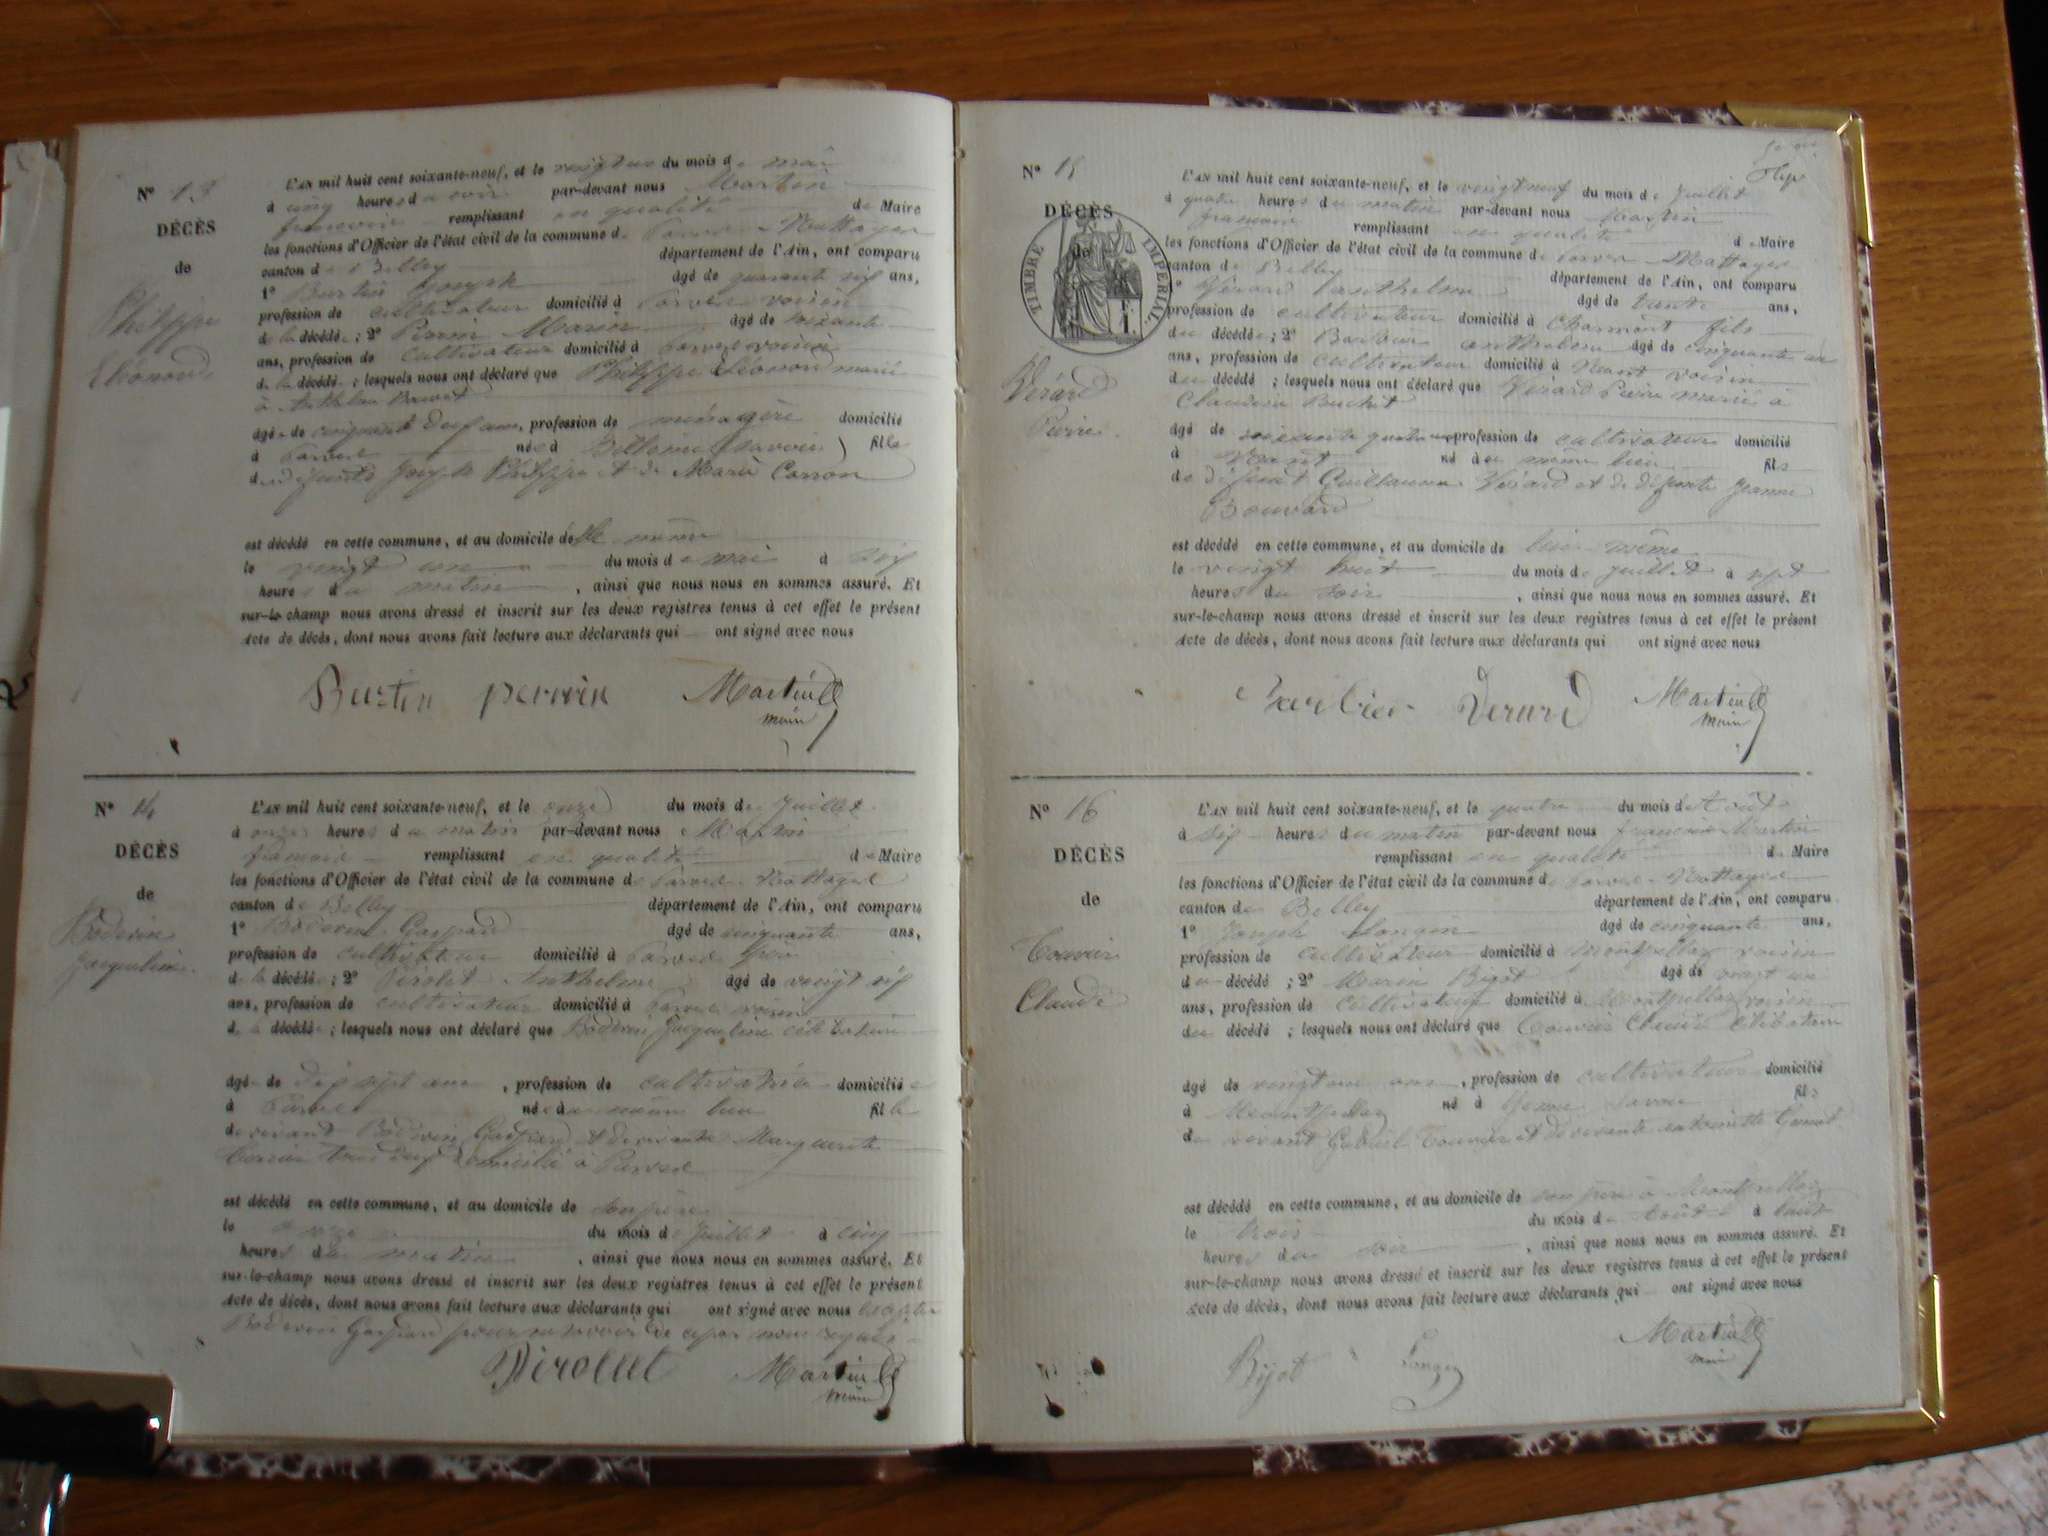 N° 13
DÉCÈS
de
Philippe
Eléonord
L'AN mil huit cent soixante-neuf, et le vingt un du mois de mai
à cinq heures du soir par-devant nous Martin
françois remplissant en qualité de Maire
les fonctions d'Officier de l'état civil de la commune de Parves Nattages
canton de Belley département de l'Ain, ont comparu
1° Burtin Joseph âgé de quarante six ans,
profession de cultivateur domicilié à Parves voisin
de la décédée ; 2° Perrin Marin âgé de soixante
ans, profession de cultivateur domicilié à Parves voisin
de la décédé ; lesquels nous ont déclaré que Philippe Eléonord marié
à Anthelme
âgée de cinquante deux ans, profession de ménagère domicilié
à Parves née à Billième (Savoie) fille
de défunts Joseph Philippe et de Marie Carron
est décédé en cette commune, et au domicile de elle même
le vingt un du mois de mai à six
heures du matin , ainsi que nous nous en sommes assuré. Et
sur-le-champ nous avons dressé et inscrit sur les deux registres tenus à cet effet le présent
Acte de décès, dont nous avons fait lecture aux déclarants qui ont signé avec nous
Burtin perrin Martin
maire
N° 14
DÉCÈS
de
Boderin
Jacqueline
L'AN mil huit cent soixante-neuf, et le onze du mois de Juillet
à onze heures du matin par-devant nous Martin
françois remplissant en qualité de Maire
les fonctions d'Officier de l'état civil de la commune de Parves Nattages
canton de Belley département de l'Ain, ont comparu
1° Boderin Gaspard âgé de cinquante ans,
profession de cultivateur domicilié à Parves père
de la décédée ; 2° Pirolet Anthelme âgé de vingt six
ans, profession de cultivateur domicilié à Parves voisin
de la décédée ; lesquels nous ont déclaré que Boderin Jacqueline célibataire
âgée de dix sept ans , profession de cultivatrice domiciliée
à Parves née au même lieu fille
de vivant Boderin Gaspard et de vivante Marguerite
tous deux domicilié à Parves
est décédé en cette commune, et au domicile de son père
le onze du mois de Juillet à cinq
heures du matin , ainsi que nous nous en sommes assuré. Et
sur-le-champ nous avons dressé et inscrit sur les deux registres tenus à cet effet le présent
Acte de décès, dont nous avons fait lecture aux déclarants qui ont signé avec nous excepté
Boderin Gaspard pour ne savoir de ce par nous requis
Pirollet Martin
maire
N° 15
DÉCÈS
de
TIMBRE IMPÉRIAL
Vérard
Pierre
L'AN mil huit cent soixante-neuf, et le vingt neuf du mois de Juillet
à quatre heures du matin par-devant nous Martin
françois remplissant en qualité de Maire
les fonctions d'Officier de l'état civil de la commune de Parves Nattages
canton de Belley département de l'Ain, ont comparu
1° Vérard Anthelme âgé de trente ans,
profession de cultivateur domicilié à Charmont fils
du décédé ; 2° Barbier anthelme âgé de cinquante un
ans, profession de cultivateur domicilié à Nant voisin
du décédé ; lesquels nous ont déclaré que Vérard Pierre marié à
Claudine Buchet
âgé de soixante quatre ans profession de cultivateur domicilié
à Nant né au même lieu fils
de défunt Guillaume Vérard et de défunte Jeanne
Bouvard
est décédé en cette commune, et au domicile de lui même
le vingt huit du mois de juillet à sept
heures du soir , ainsi que nous nous en sommes assuré. Et
sur-le-champ nous avons dressé et inscrit sur les deux registres tenus à cet effet le présent
Acte de décès, dont nous avons fait lecture aux déclarants qui ont signé avec nous
Barbier Verard Martin
maire
N° 16
DÉCÈS
de
Touvier
Claude
L'AN mil huit cent soixante-neuf, et le quatre du mois d'Août
à six heures du matin par-devant nous françois Martin
remplissant en qualité de Maire
les fonctions d'Officier de l'état civil de la commune de Parves Nattages
canton de Belley département de l'Ain, ont comparu
1° Joseph Longin âgé de cinquante ans,
profession de cultivateur domicilié à Montpellaz voisin
du décédé ; 2° Marin Bijot âgé de vingt un
ans, profession de cultivateur domicilié à Montpellaz voisin
du décédé ; lesquels nous ont déclaré que Touvier Claude célibataire
âgé de vingt un ans , profession de cultivateur domicilié
à Montpellaz né à Yenne Savoie fils
de vivant Gabriel Touvier et de vivante antoinette
est décédé en cette commune, et au domicile de son père à Montpellaz
le trois du mois de Août à huit
heures du soir , ainsi que nous nous en sommes assuré. Et
sur-le-champ nous avons dressé et inscrit sur les deux registres tenus à cet effet le présent
Acte de décès, dont nous avons fait lecture aux déclarants qui ont signé avec nous
Bijot Longin Martin
maire